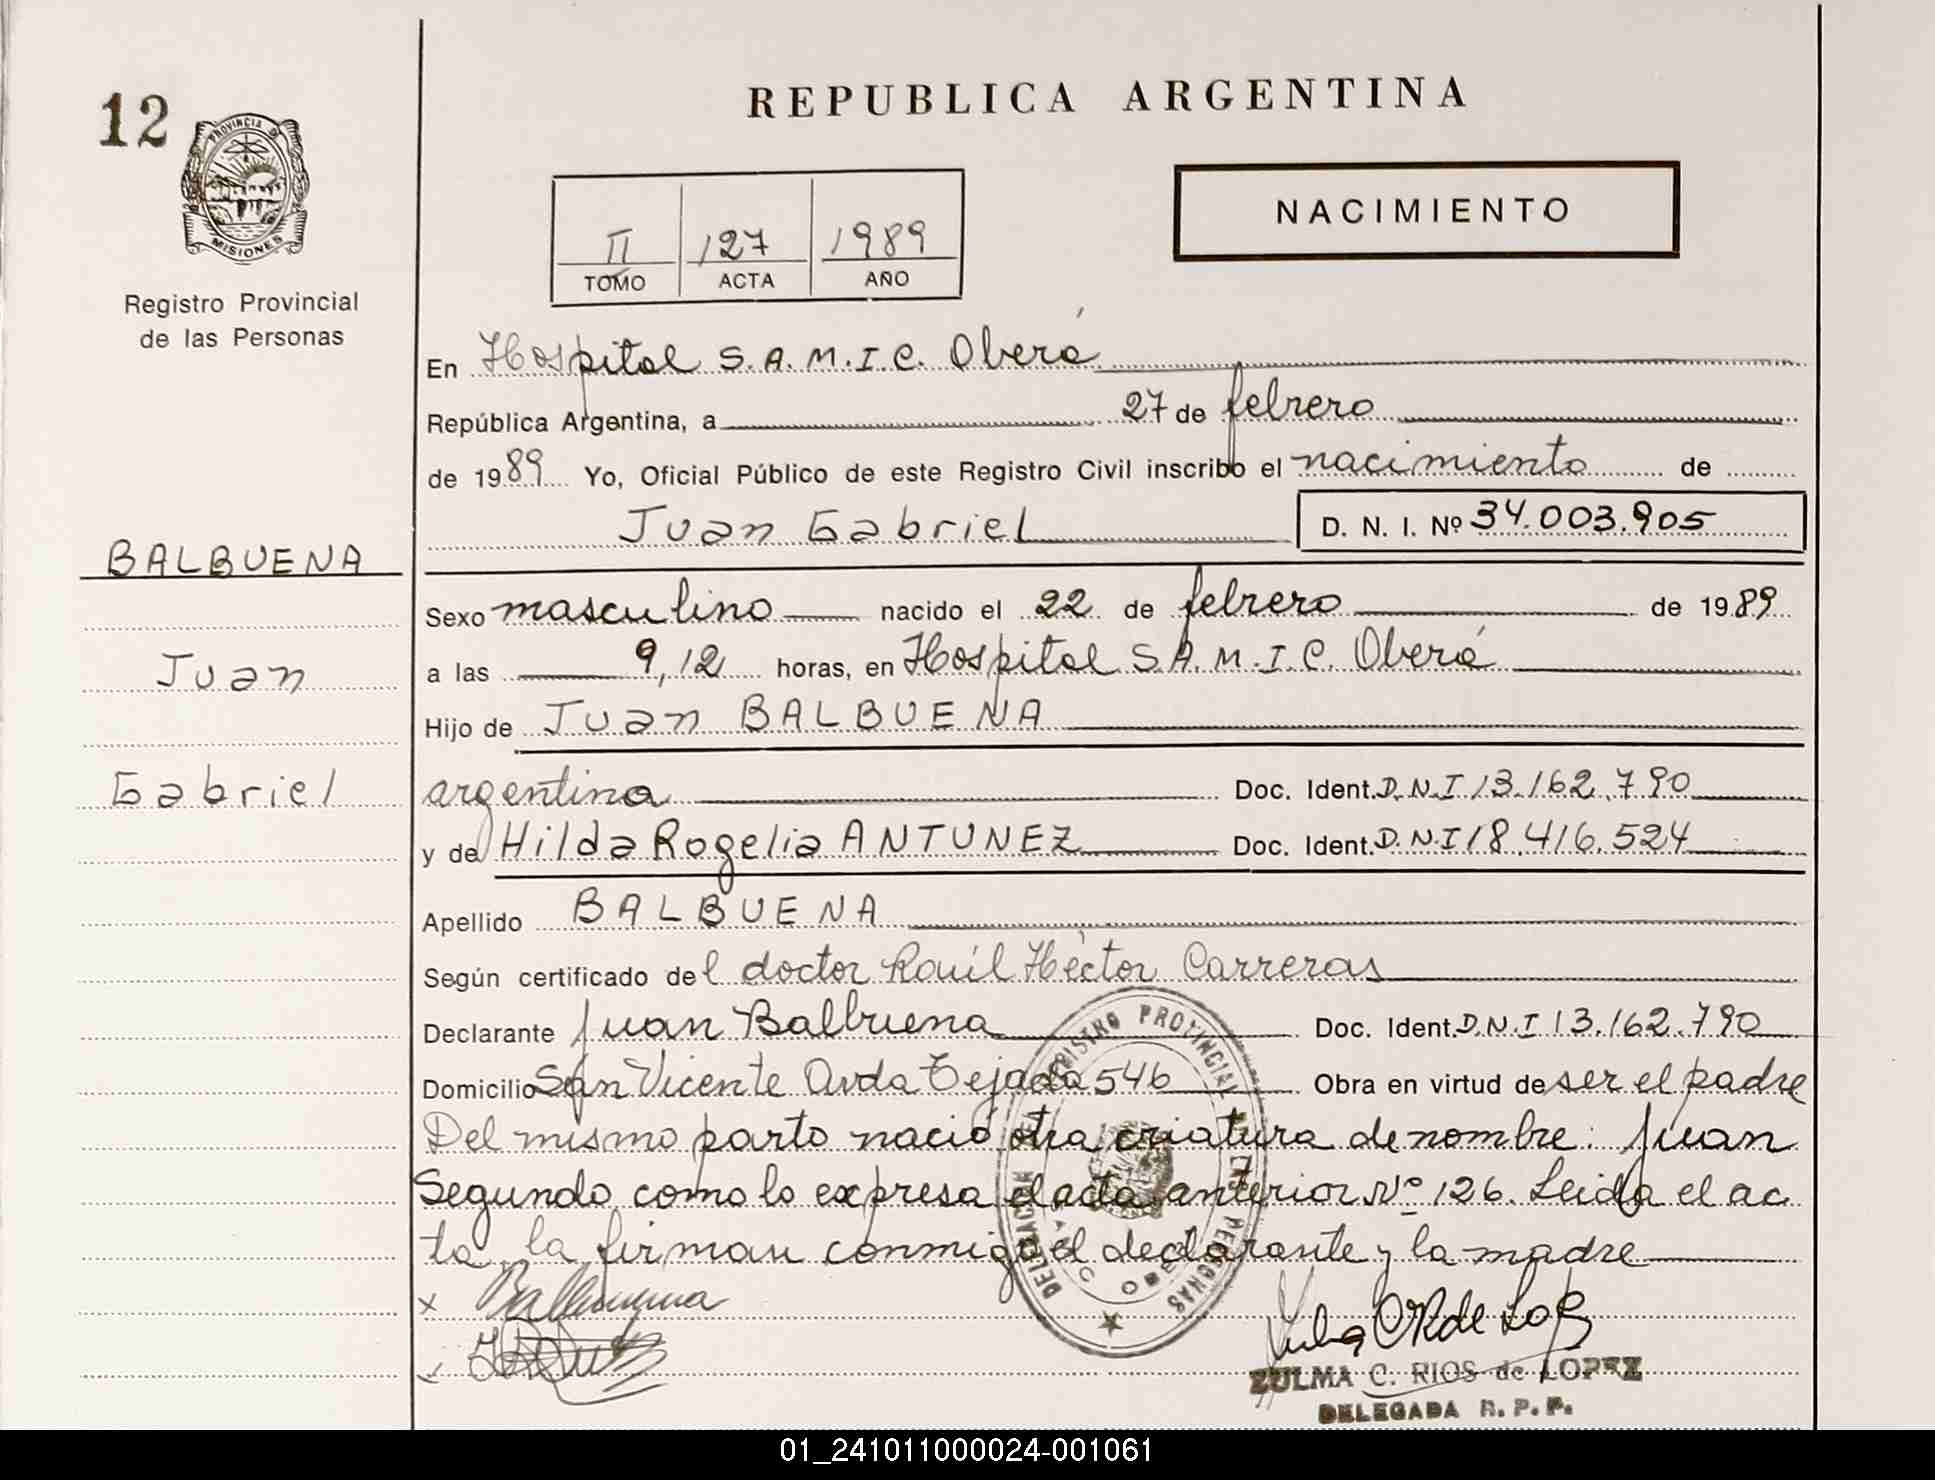 REPUBLICA ARGENTINA
12
PROVINCIA DE
MISIONES
Registro Provincial
de las Personas
NACIMIENTO
II 127 1989
TOMO ACTA AÑO
En Hospital S.A.M.I.C. Oberá
República Argentina, a 27 de febrero
de 1989 Yo, Oficial Público de este Registro Civil inscribo el nacimiento de
Juan Gabriel D. N. I. Nº 34.003.905
BALBUENA
Juan
Gabriel
Sexo masculino nacido el 22 de febrero de 1989
a las 9,12 horas, en Hospital S.A.M.I.C. Oberá
Hijo de Juan BALBUENA
argentina Doc. Ident. D.N.I 13.162.790
y de Hilda Rogelia ANTUNEZ Doc. Ident. D.N.I 18.416.524
Apellido BALBUENA
Según certificado del doctor Raúl Héctor Carreras
Declarante Juan Balbuena Doc. Ident. D.N.I 13.162.790
Domicilio San Vicente Avda Tejada 546 Obra en virtud de ser el padre
Del mismo parto nació otra criatura de nombre: Juan
Segundo como lo expresa el acta anterior Nº 126. Leida el ac
ta, la firman conmigo el declarante y la madre
x Balbuena
DELEGACION DEL REGISTRO PROVINCIAL DE LAS PERSONAS
SAMIC OBERA
ZULMA C. RIOS de LOPEZ
DELEGADA R. P. P.
01_241011000024-001061